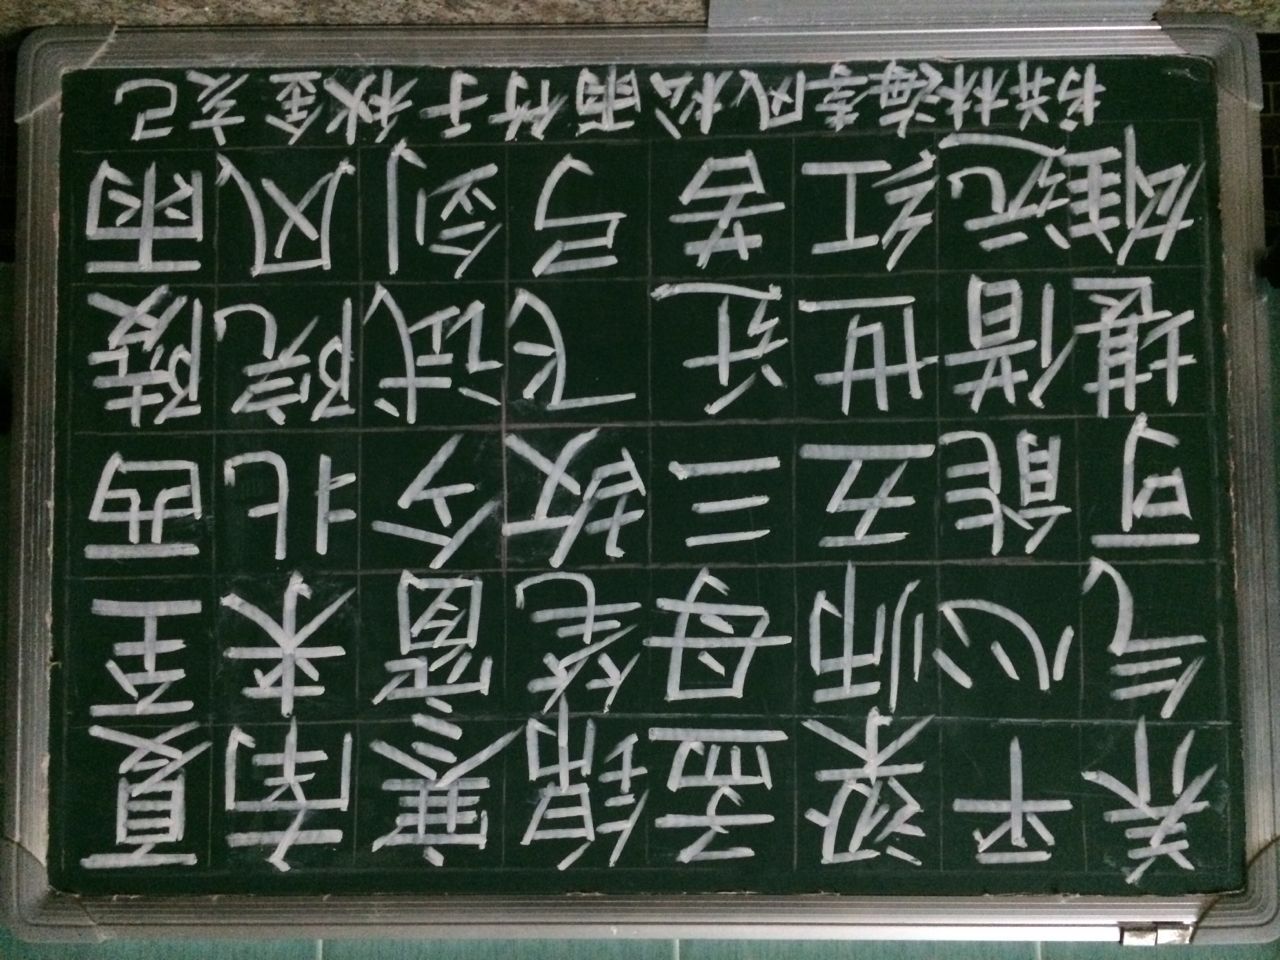 夏至西陵雨
南来北院风
寒窗今试剑
锦笔故飞弓
孟母三迁苦
梁师五世红
平心能借远
养气可堪雄
己亥金秋于竹雨松风李海林并书